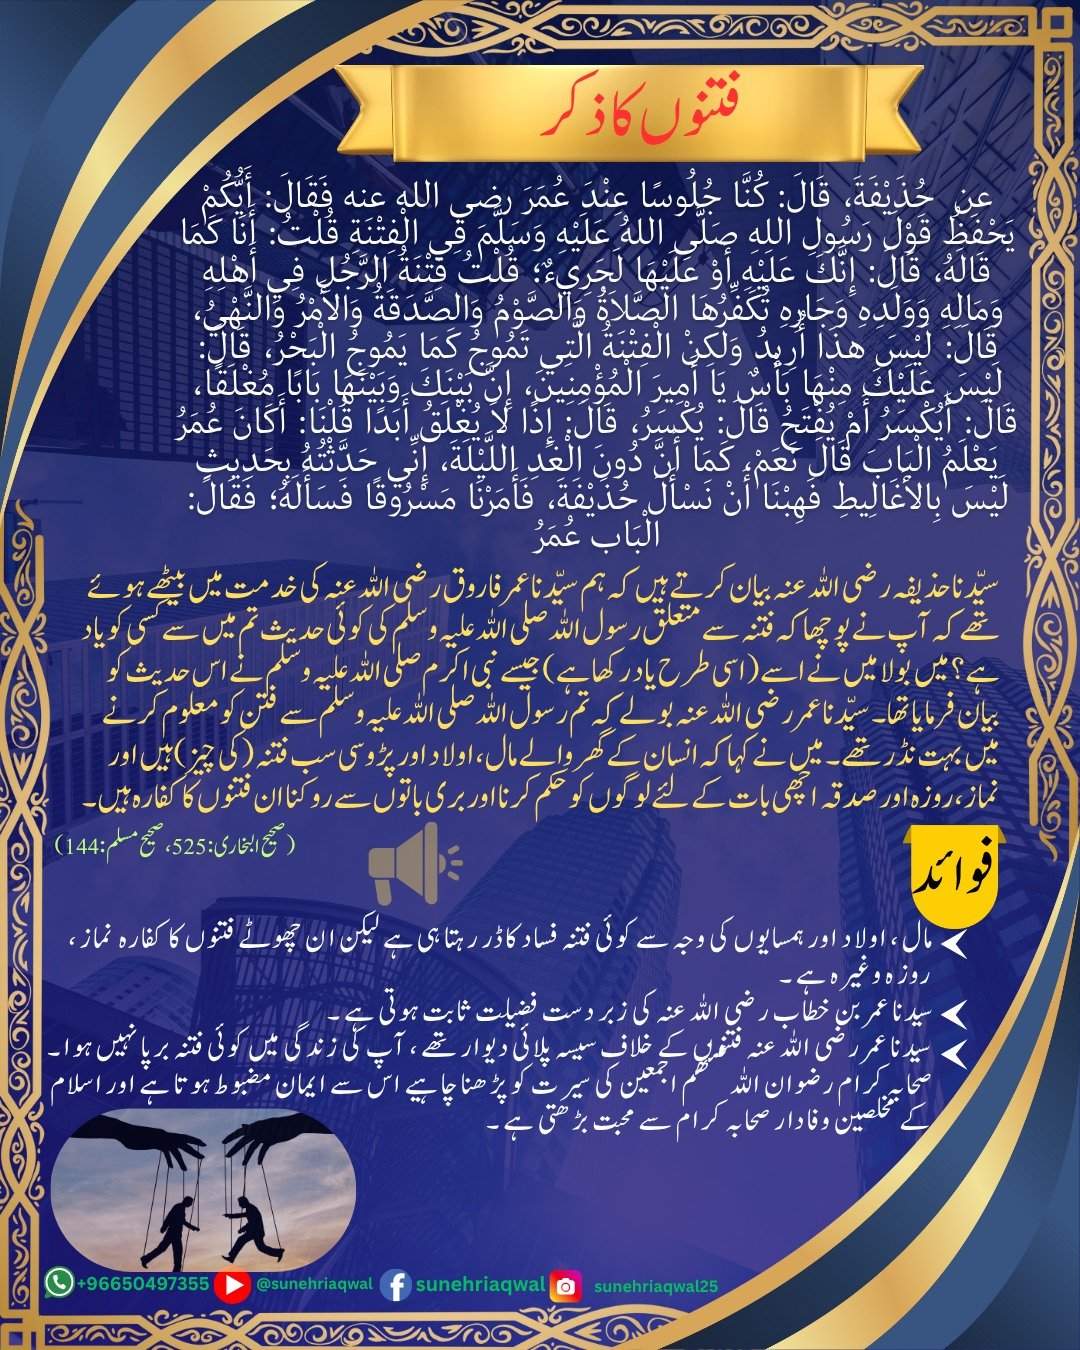 فتنوں کا ذکر
عن حُذَيْفَةَ، قَالَ: كُنَّا جُلُوسًا عِنْدَ عُمَرَ رضي الله عنه فَقَالَ: أَيُّكُمْ
يَحْفَظُ قَوْلَ رَسُولِ اللهِ صَلَّى اللهُ عَلَيْهِ وَسَلَّمَ فِي الْفِتْنَةِ قُلْتُ: أَنَا كَمَا
قَالَهُ، قَالَ: إِنَّكَ عَلَيْهِ أَوْ عَلَيْهَا لَجَرِيءٌ؛ قُلْتُ فِتْنَةُ الرَّجُلِ فِي أَهْلِهِ
وَمَالِهِ وَوَلَدِهِ وَجَارِهِ تُكَفِّرُهَا الصَّلاَةُ وَالصَّوْمُ وَالصَّدَقَةُ وَالأَمْرُ وَالنَّهْيُ،
قَالَ: لَيْسَ هذَا أُرِيدُ وَلَكِنْ الْفِتْنَةُ الَّتِي تَمُوجُ كَمَا يَمُوجُ الْبَحْرُ، قَالَ:
لَيْسَ عَلَيْكَ مِنْهَا بَأْسٌ يَا أَمِيرَ الْمُؤْمِنِينَ، إِنَّ بَيْنَكَ وَبَيْنَهَا بَابًا مُغْلَقًا،
قَالَ: أَيُكْسَرُ أَمْ يُفْتَحُ قَالَ: يُكْسَرُ، قَالَ: إِذًا لاَ يُغْلَقُ أَبَدًا قُلْنَا: أَكَانَ عُمَرُ
يَعْلَمُ الْبَابَ قَالَ نَعَمْ، كَمَا أَنَّ دُونَ الْغَدِ اللَّيْلَةَ، إِنِّي حَدَّثْتُهُ بِحَدِيثٍ
لَيْسَ بِالأَغَالِيطِ فَهِبْنَا أَنْ نَسْأَلَ حُذَيْفَةَ، فَأَمَرْنَا مَسْرُوقًا فَسَأَلَهُ؛ فَقَالَ:
الْبَاب عُمَرُ
سیّدنا حذیفہ رضی اللہ عنہ بیان کرتے ہیں کہ ہم سیّدنا عمر فاروق رضی اللہ عنہ کی خدمت میں بیٹھے ہوئے
تھے کہ آپ نے پوچھا کہ فتنہ سے متعلق رسول اللہ صلی اللہ علیہ وسلم کی کوئی حدیث تم میں سے کسی کو یاد
ہے؟ میں بولا میں نے اسے (اسی طرح یاد رکھا ہے) جیسے نبی اکرم صلی اللہ علیہ وسلم نے اس حدیث کو
بیان فرمایا تھا۔ سیّدنا عمر رضی اللہ عنہ بولے کہ تم رسول اللہ صلی اللہ علیہ وسلم سے فتن کو معلوم کرنے
میں بہت نڈر تھے۔ میں نے کہا کہ انسان کے گھر والے مال، اولاد اور پڑوسی سب فتنہ (کی چیز) ہیں اور
نماز، روزہ اور صدقہ اچھی بات کے لئے لوگوں کو حکم کرنا اور بری باتوں سے روکنا ان فتنوں کا کفارہ ہیں۔
(صحیح البخاری: 525، صحیح مسلم: 144)
فوائد
مال، اولاد اور ہمسایوں کی وجہ سے کوئی فتنہ فساد کا ڈر رہتا ہی ہے لیکن ان چھوٹے فتنوں کا کفارہ نماز،
روزہ وغیرہ ہے۔
سیدنا عمر بن خطاب رضی اللہ عنہ کی زبردست فضیلت ثابت ہوتی ہے۔
سیدنا عمر رضی اللہ عنہ فتنوں کے خلاف سیسہ پلائی دیوار تھے، آپ کی زندگی میں کوئی فتنہ برپا نہیں ہوا۔
صحابہ کرام رضوان اللہ علیہم اجمعین کی سیرت کو پڑھنا چاہیے اس سے ایمان مضبوط ہوتا ہے اور اسلام
کے مخلصین وفادار صحابہ کرام سے محبت بڑھتی ہے۔
+96650497355 @sunehriaqwal sunehriaqwal sunehriaqwal25